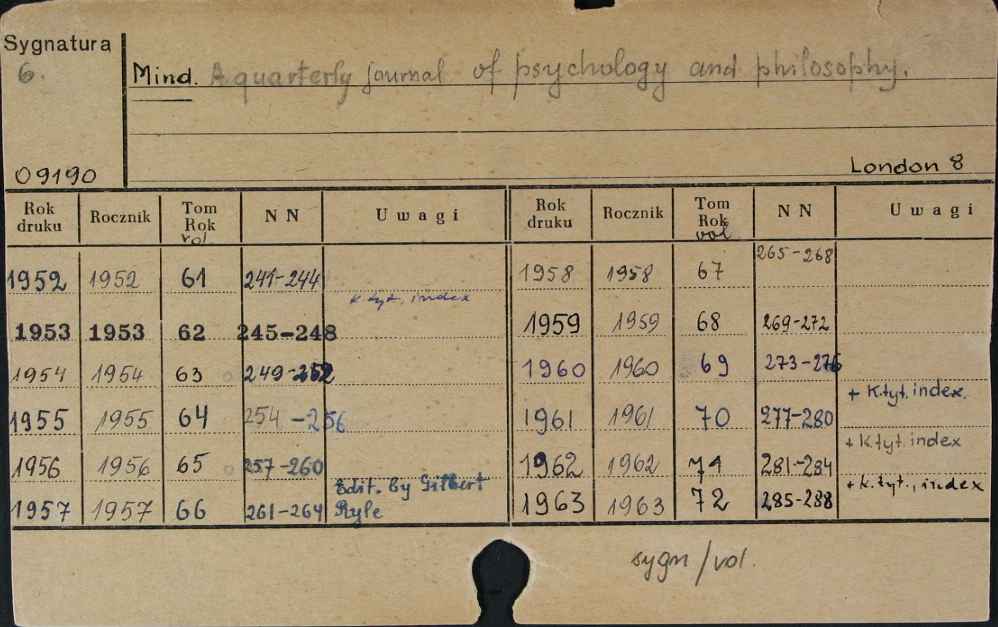 Sygnatura
6.
Mind. A quarterly journal of psychology and philosophy.
09190
London 8
Rok druku Rocznik Tom Rok vol NN Uwagi Rok druku Rocznik Tom Rok vol NN Uwagi
1952 1952 61 241-244 1958 1958 67 265-268
K. tyt., index
1953 1953 62 245-248 1959 1959 68 269-272
1954 1954 63 249-252 1960 1960 69 273-276
+ K.tyt. index.
1955 1955 64 254 -256 1961 1961 70 277-280
+ K.tyt. index
1956 1956 65 257-260 1962 1962 71 281-284
Edit. By Gilbert + K. tyt., index
1957 1957 66 261-264 Ryle 1963 1963 72 285-288
sygn/vol.